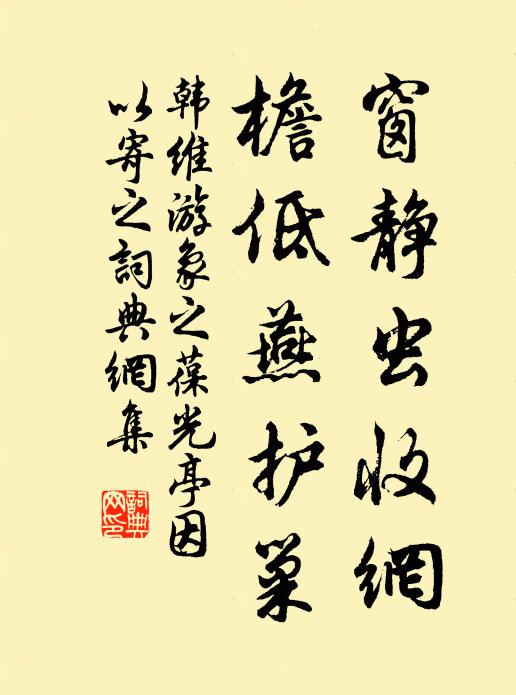 窗静虫收網
檐低燕护巢
韩维游象之葆光亭因
以寄之詞典網集
詞典
网印